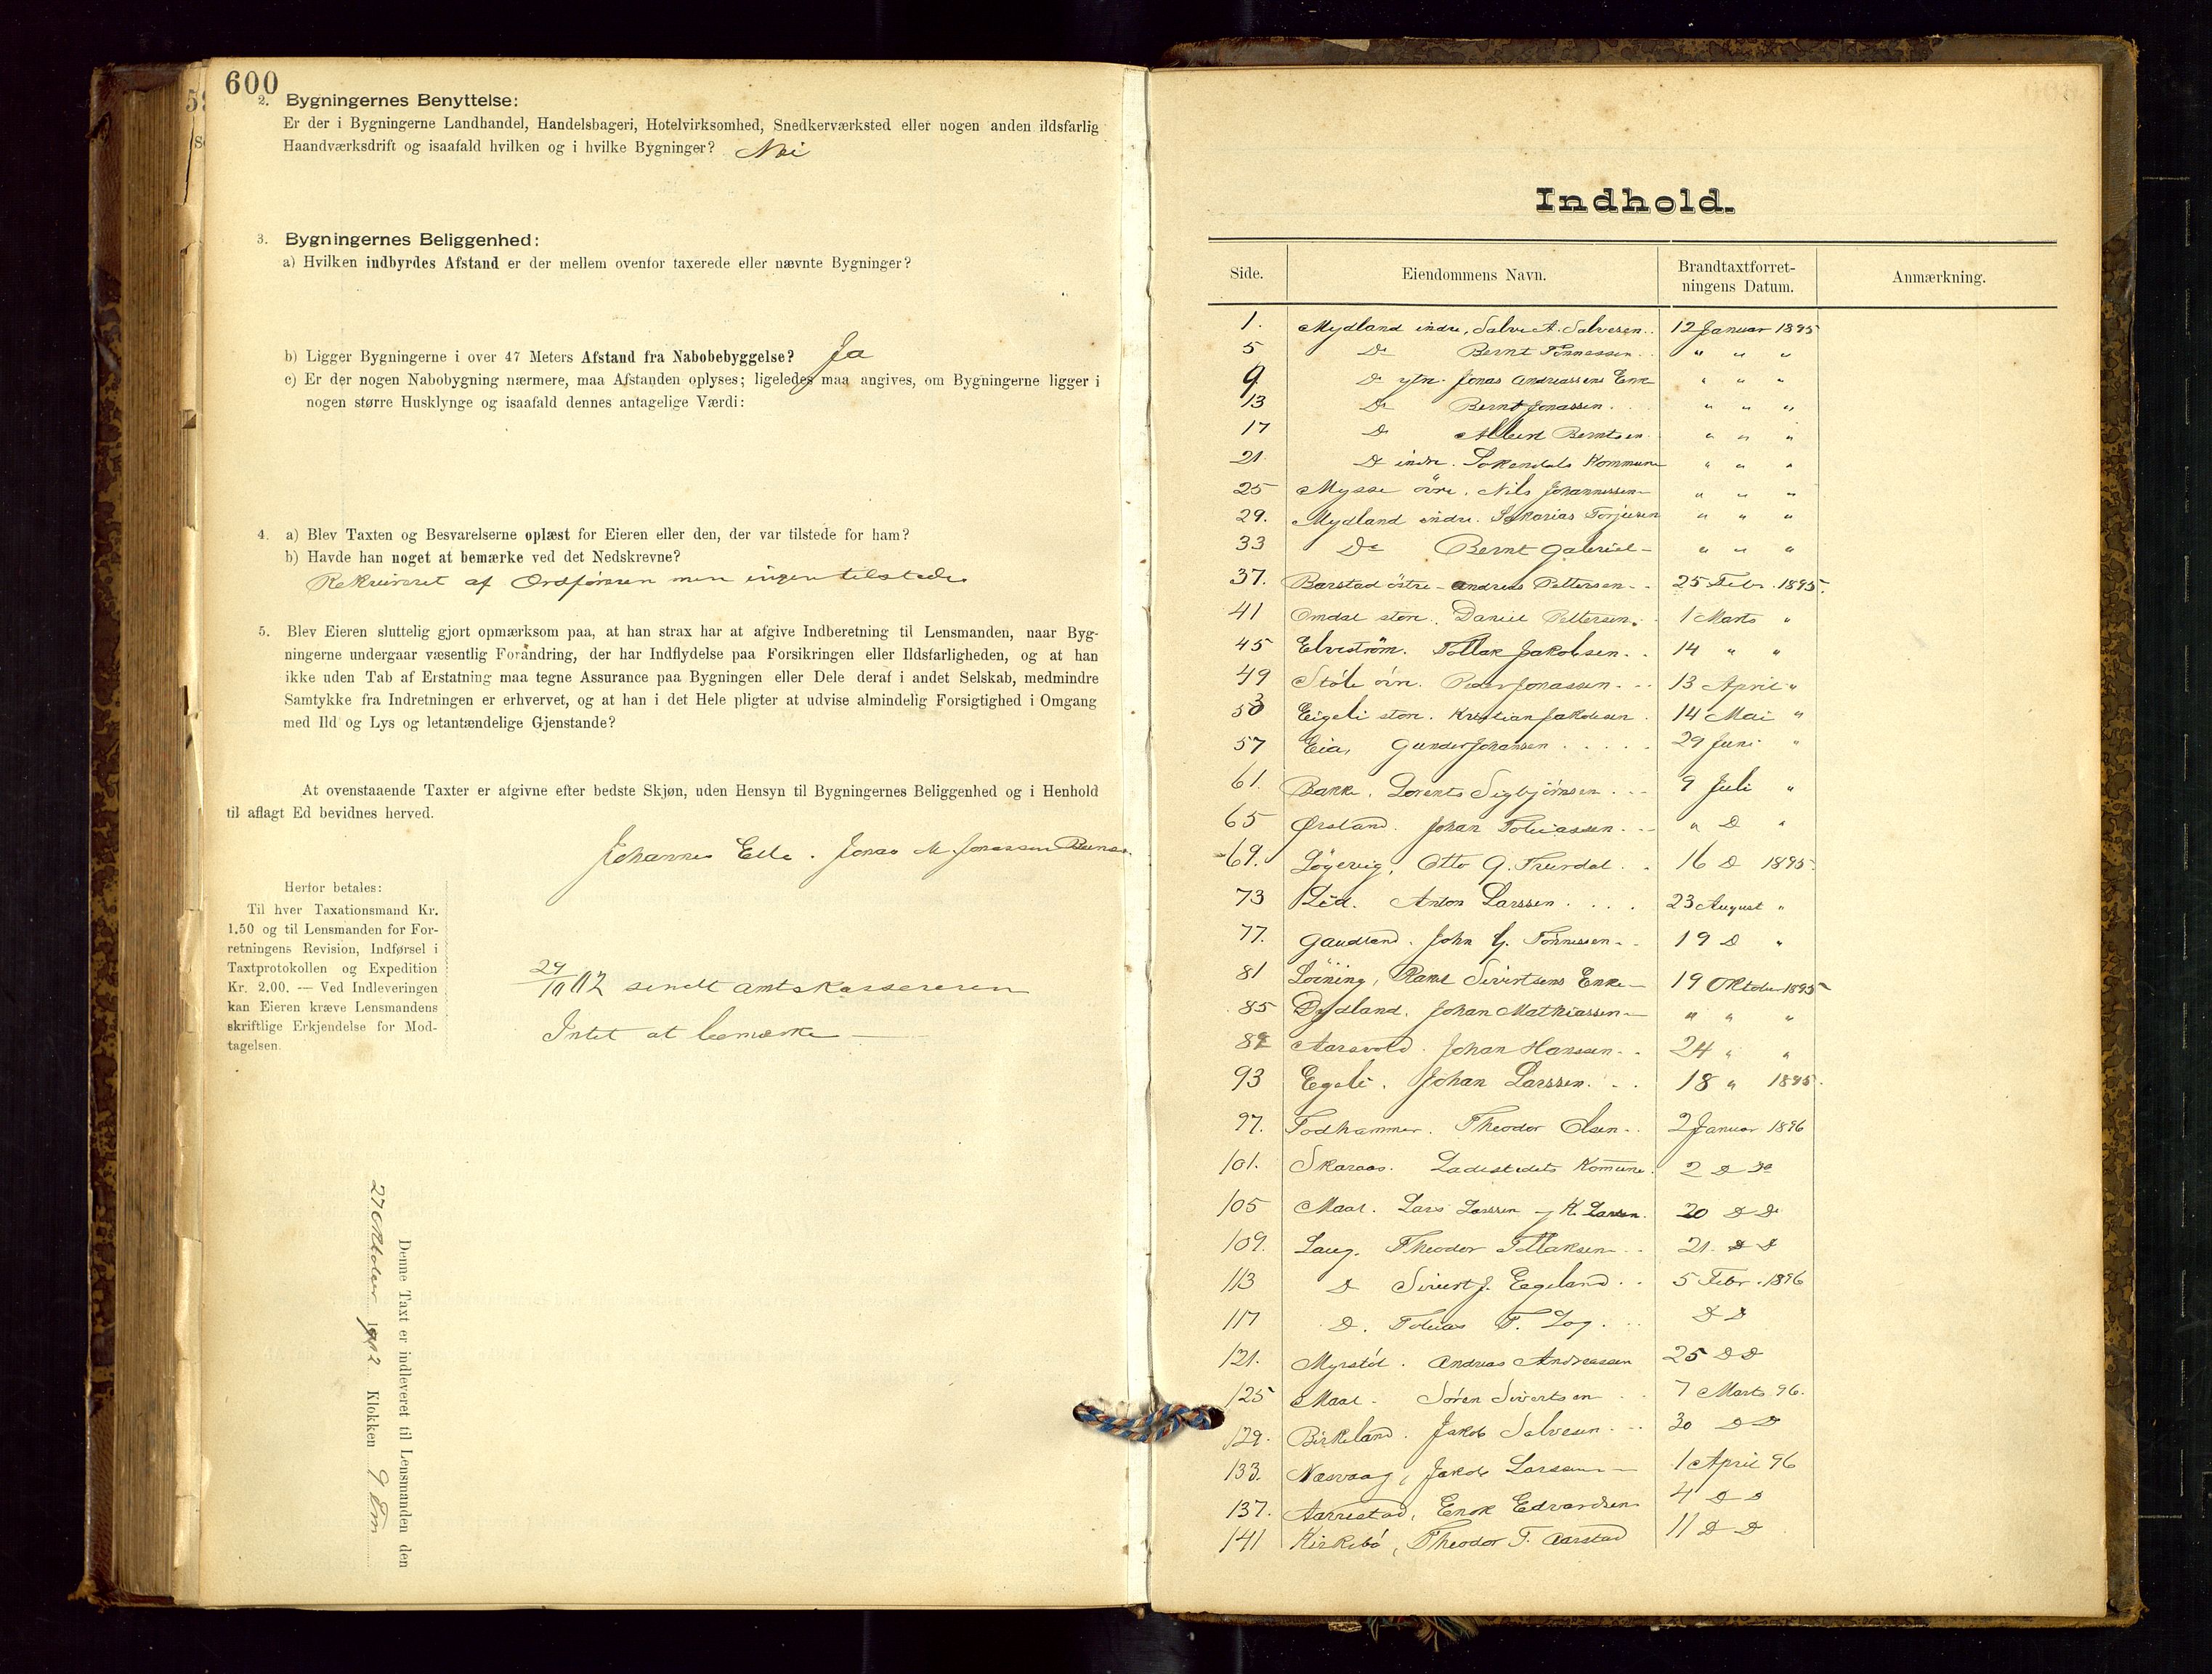 600
2. Bygningernes Benyttelse:
Er der i Bygningerne Landhandel, Handelsbageri, Hotelvirksomhed, Snedkerværksted eller nogen anden ildsfarlig
Haandværksdrift og isaafald hvilken og i hvilke Bygninger? Nei
3. Bygningernes Beliggenhed:
a) Hvilken indbyrdes Afstand er der mellem ovenfor taxerede eller nævnte Bygninger?
b) Ligger Bygningerne i over 47 Meters Afstand fra Nabobebyggelse? Ja
c) Er der nogen Nabobygning nærmere, maa Afstanden oplyses; ligeledes maa angives, om Bygningerne ligger i
nogen større Husklynge og isaafald dennes antagelige Værdi:
4. a) Blev Taxten og Besvarelserne oplæst for Eieren eller den, der var tilstede for ham?
b) Havde han noget at bemærke ved det Nedskrevne?
Rekvireret af Ordføreren men ingen tilstede
5. Blev Eieren sluttelig gjort opmærksom paa, at han strax har at afgive Indberetning til Lensmanden, naar Byg-
ningerne undergaar væsentlig Forandring, der har Indflydelse paa Forsikringen eller Ildsfarligheden, og at han
ikke uden Tab af Erstatning maa tegne Assurance paa Bygningen eller Dele deraf i andet Selskab, medmindre
Samtykke fra Indretningen er erhvervet, og at han i det Hele pligter at udvise almindelig Forsigtighed i Omgang
med Ild og Lys og letantændelige Gjenstande?
At ovenstaaende Taxter er afgivne efter bedste Skjøn, uden Hensyn til Bygningernes Beliggenhed og i Henhold
til aflagt Ed bevidnes herved.
Johannes Eda. Jonas M. Jonassen
Herfor betales:
Til hver Taxationsmand Kr.
1.50 og til Lensmanden for For-
retningens Revision, Indførsel i
Taxtprotokollen og Expedition
Kr. 2.00. — Ved Indleveringen
kan Eieren kræve Lensmandens
skriftlige Erkjendelse for Mod-
tagelsen.
29/10 02 sendt amtskassereren
Intet at bemærke
Denne Taxt er indleveret til Lensmanden den
27 Oktober 1902 Klokken 9 Fm
Indhold.
Side. Eiendommens Navn. Brandtaxtforret-ningens Datum. Anmærkning.
1. Mydland indre, Salve A. Salvesen 12 Januar 1895
5 Do Bernt Tønnessen " " "
9 Do ytre. Jonas Andreassens Enke " " "
13 Do Bernt Jonassen " " "
17 Do Albert Berntsen " " "
21 Do indre. Sokendals Kommune " " "
25 Mysse övre. Nils Johannessen " " "
29. Mydland indre. Sakarias Torjusen " " "
33 Do Bernt Gabriel " " "
37. Barstad östre Andreas Pettersen 25 Febr. 1895.
41 Omdal store. Daniel Pettersen 1 Marts "
45 Elvestrøm. Tollak Jakobsen 14 " "
49 Støle övre. Peder Jonassen 13 April "
53 Eigeli store. Kristian Jakobsen 14 Mai "
57 Eia, Gunder Johansen 29 Juni "
61. Bakke, Lorents Sigbjørnsen 9 Juli "
65 Ørsland. Johan Tobiassen " D "
69. Løgevig, Otto G. 16 D 1895.
73 Anton Larssen 23 August "
77. Gaudland. John G. Tønnessen 19 D "
81 Løining, Sivertsens Enke 19 Oktober 1895
85 Dydland. Johan Mathiassen " " "
89 Aarsvold. Johan Hanssen 24 " "
93 Egeli. Johan Larssen 18 " 1895.
97. Fodhammer. Theodor Olsen 2 Januar 1896
101. Skaraas. Ladestedets Komune 2 D Do
105 Maal. Lars Larssen og K. Larsen 20 D D
109. Laug. Theodor Tollaksen 21. D D
113 D Sivert J. Eegeland 5 Febr. 1896
117 D. Tobias T. Log D D
121. Myrstøl. Andreas Andreassen 25 D D
125 Maal. Søren Sivertsen 7 Marts 96.
129. Birkeland. Jakob Salvesen 30 D D
133. Næsvaag, Jakob Larssen 1 April 96
137. Aarrestad, Enok Edvardsen 4 D D
141 Kirkebø, Theodor T. Aarstad 11 D D